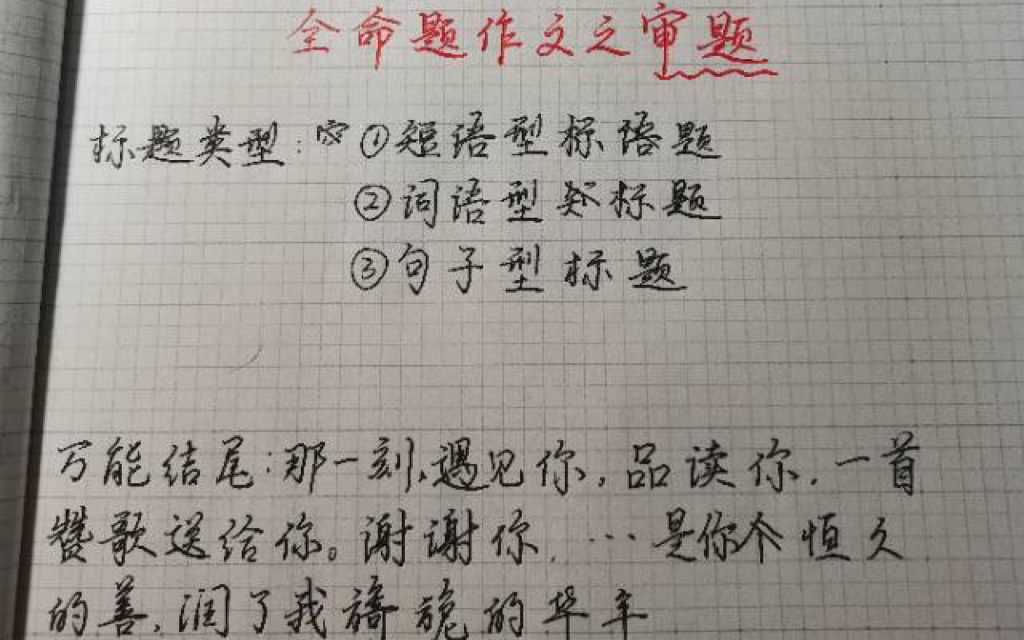 全命题作文之审题
标题类型: ①短语型标语题
②词语型标题
③句子型标题
万能结尾:那一刻,遇见你,品读你,一首
赞歌送给你。谢谢你,…是你个恒久
的善,润了我旖旎的华年